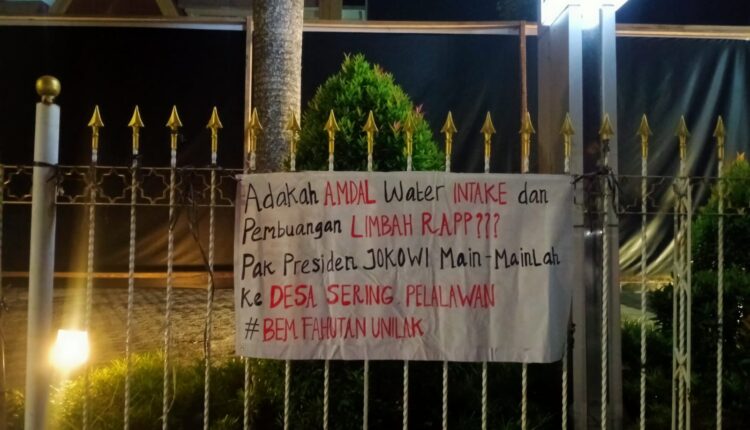 Adakah AMDAL Water INTAKE dan
Pembuangan LIMBAH RAPP???
Pak Presiden JOKOWI Main-MainLah
Ke DESA SERING PELALAWAN
#BEM FAHUTAN UNILAK